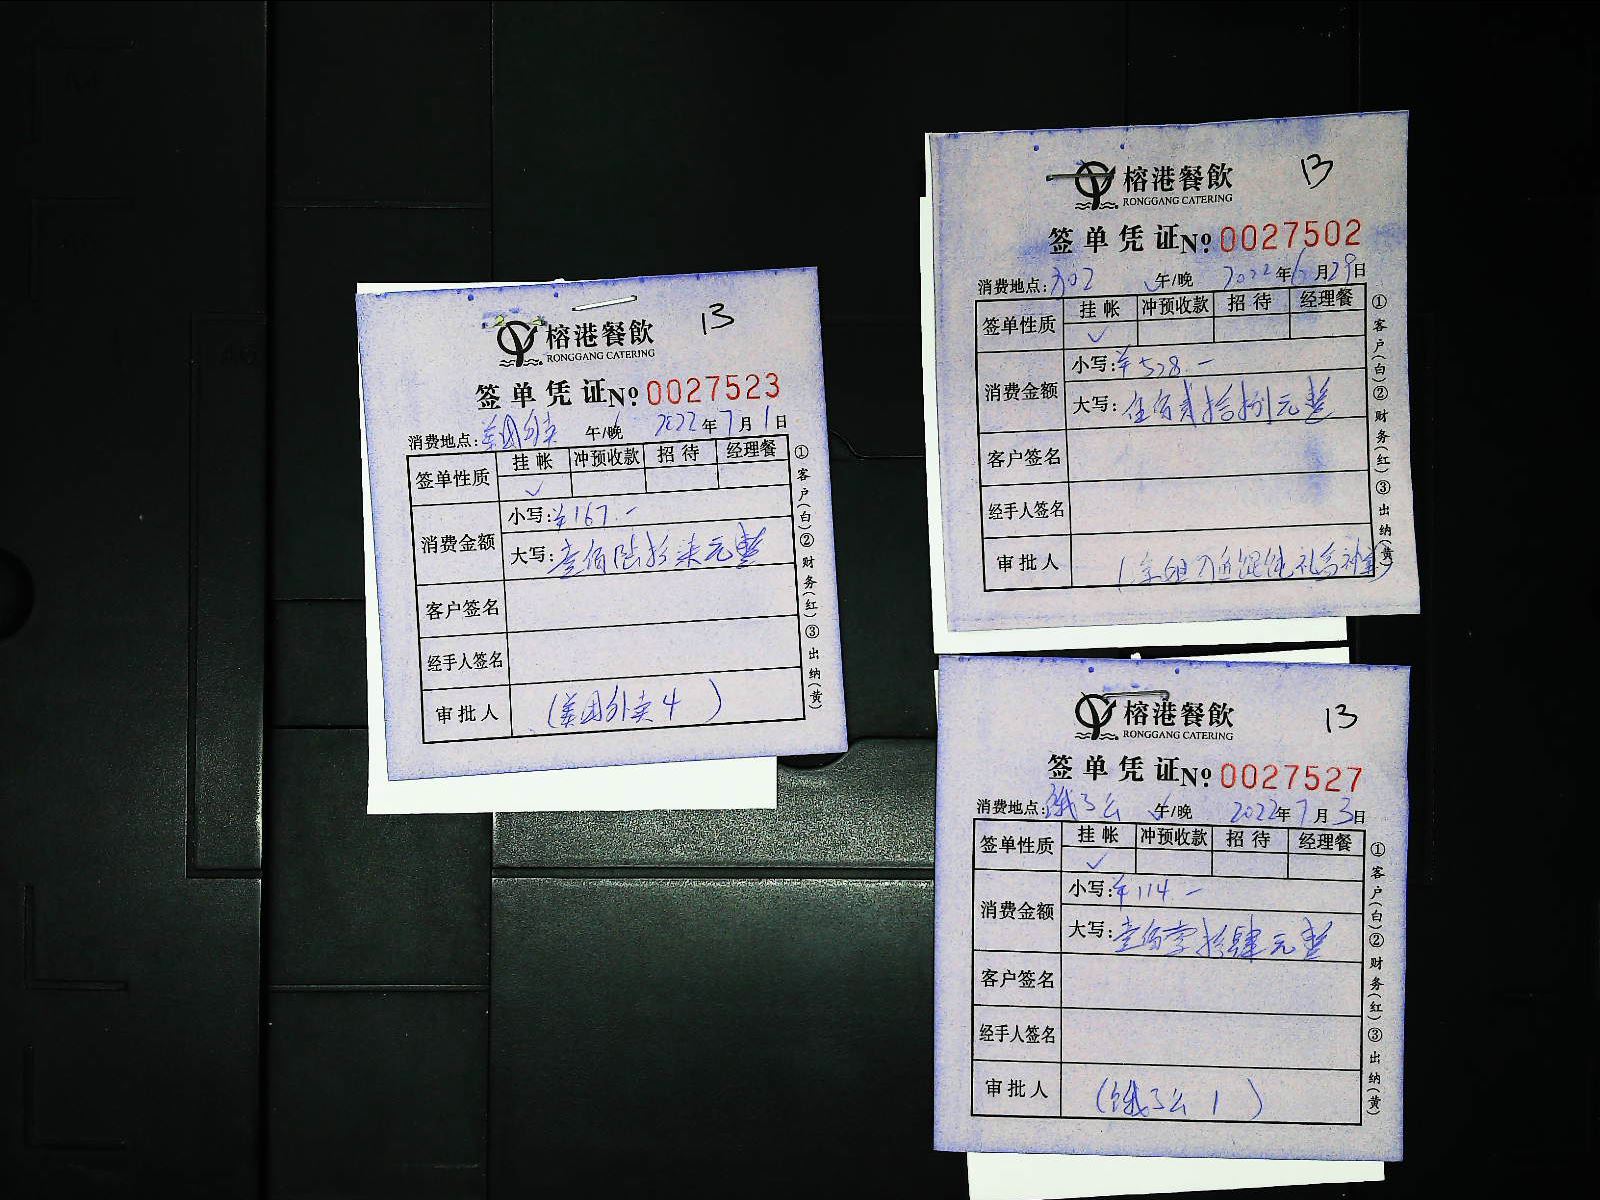 榕港餐飲
RONGGANG CATERING
13
签单凭证№:0027523
消费地点:美团外卖 午/晚 2022年7月1日
签单性质 挂帐 冲预收款 招待 经理餐
✓
消费金额 小写:¥167.-
大写:壹佰陆拾柒元整
客户签名
经手人签名
审批人 (美团外卖4)
①客户(白)②财务(红)③出纳(黄)
榕港餐飲
RONGGANG CATERING
13
签单凭证№:0027502
消费地点:302 午/晚 2022年6月29日
签单性质 挂帐 冲预收款 招待 经理餐
✓
消费金额 小写:¥528.-
大写:伍佰贰拾捌元整
客户签名
经手人签名
审批人
①客户(白)②财务(红)③出纳(黄)
榕港餐飲
RONGGANG CATERING
13
签单凭证№:0027527
消费地点:饿了么 午/晚 2022年7月3日
签单性质 挂帐 冲预收款 招待 经理餐
✓
消费金额 小写:¥114.-
大写:壹佰壹拾肆元整
客户签名
经手人签名
审批人 (饿了么1)
①客户(白)②财务(红)③出纳(黄)